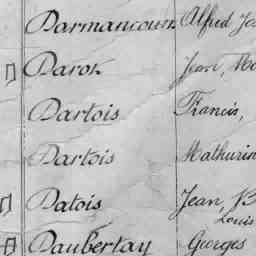 Darmancourt Alfred Jo
Darok Jean, Ma
Dartois Francis,
Dartois Mathurin
Datois Jean, B
Louis
Daubertay Georges